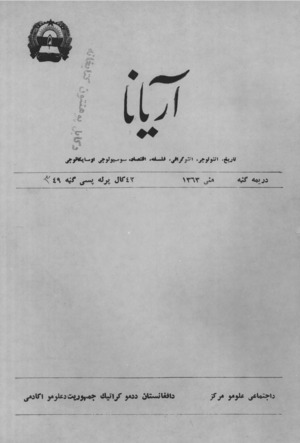 دکابل پوهنتون کتابخانه
آریانا
تاریخ، اتنولوجی، اتنوگرافی، فلسفه، اقتصاد، سوسیولوجی اوسایکالوجی
دریمه گڼه مني ۱۳۶۳ ۴۲ کال پرله پسې گڼه ۴۹
داجتماعی علومو مرکز دافغانستان ددموکراتیک جمهوریت دعلومو اکادمی